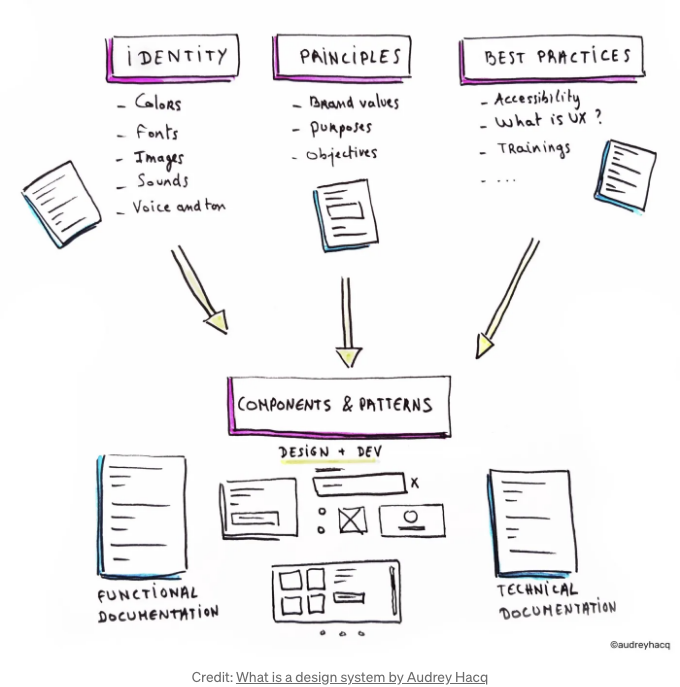 IDENTITY
- Colors
- Fonts
- Images
- Sounds
- Voice and ton
PRINCIPLES
- Brand values
- purposes
- objectives
BEST PRACTICES
- Accessibility
- What is UX ?
- TRainings
- ...
COMPONENTS & PATTERNS
DESIGN + DEV
x
FUNCTIONAL
DOCUMENTATION
TECHNICAL
DOCUMENTATION
©audreyhacq
Credit: What is a design system by Audrey Hacq